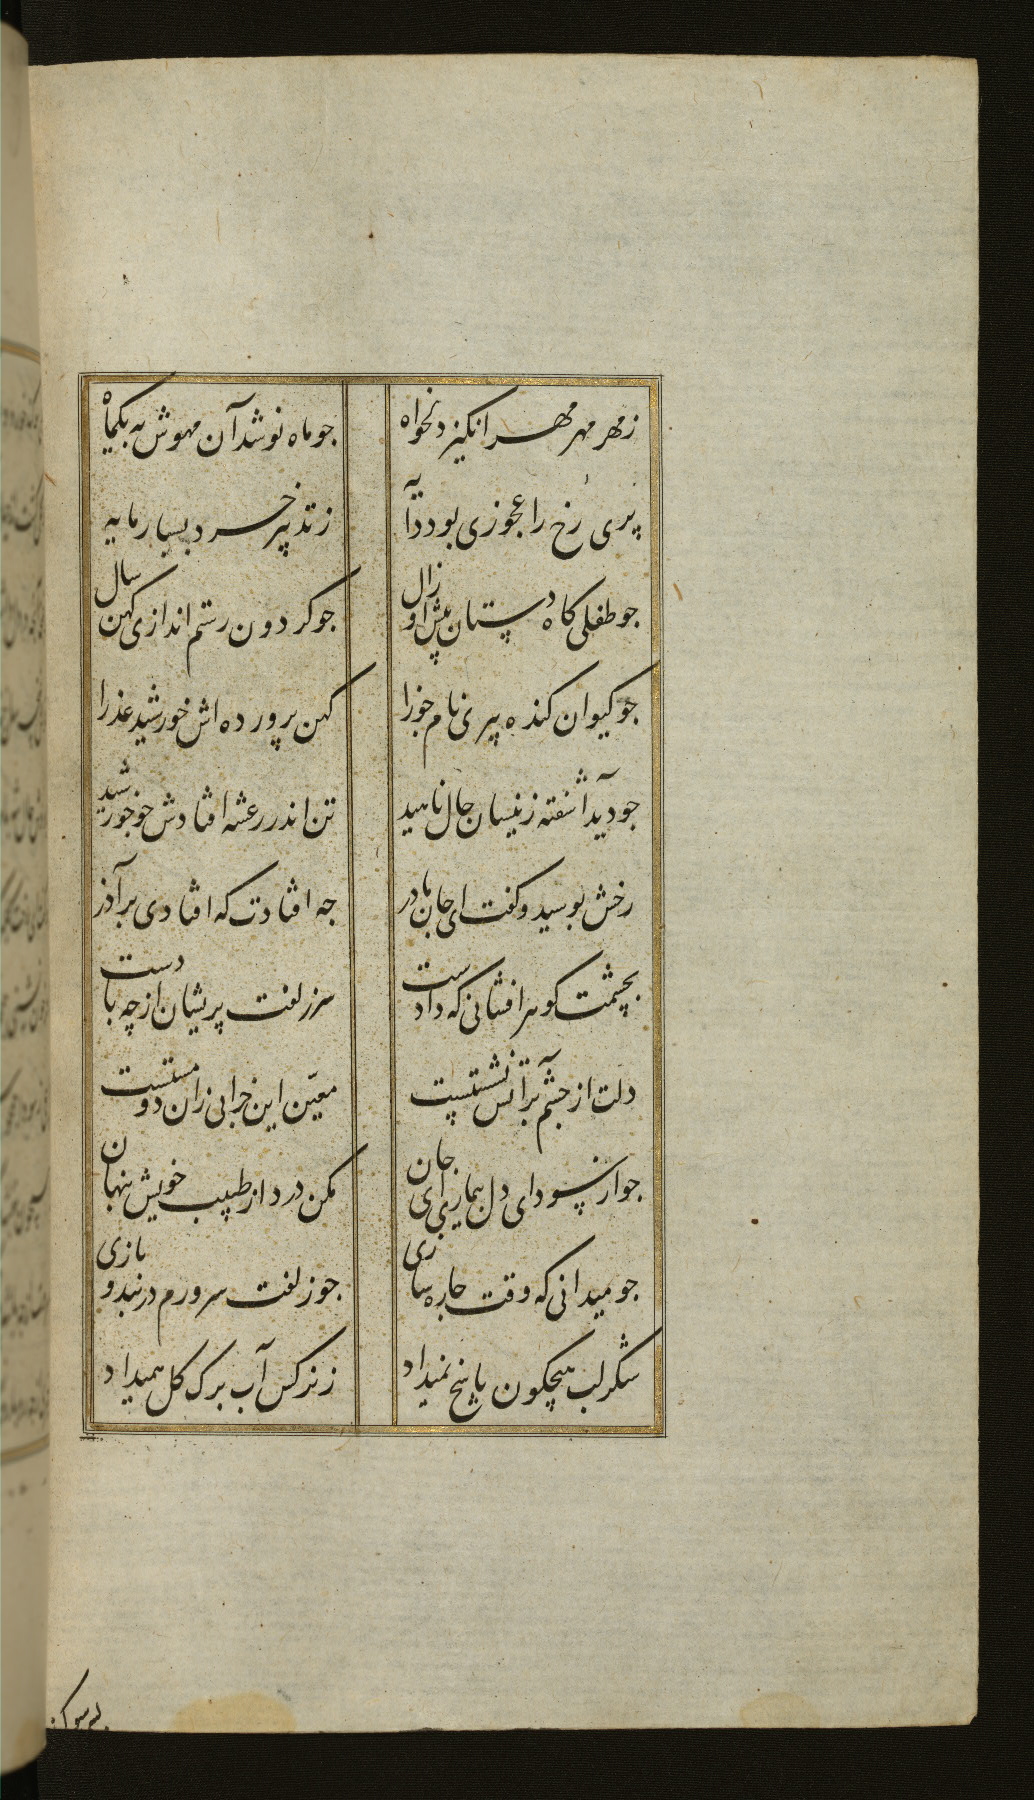 زمهر مهر مهر انکیز دلخواه جو ماه نو شد آن مهوش به یکماه
پری رخ را عجوزی بود دایه زتدبیر خرد بسیار مایه
جو طفلی کاه دستان پیش او زال جو کردون رستم اندازی کهن سال
جو کیوان کنده پیری نام جوزا کهن پرورده اش خورشید عذرا
جو دید آشفته زینسان حال ناهید تن اندر رعشه افتادش جو خورشید
رخش بوسید و کفت ای جان مادر جه افتادت که افتادی بر آذر
بچشمت کوهر افشانی که دادست سر زلفت پریشان از چه بادست
دلت از جشم بر آتش نشستست معین این خرابی زان دو مستست
جو از سودای دل بیماری ای جان مکن درد از طبیب خویش پنهان
جو میدانی که وقت جاره سازی جو زلفت سرورم در بند و بازی
شکر لب هیچکون پاسخ نمیداد ز نرکس آب برک کل همیداد